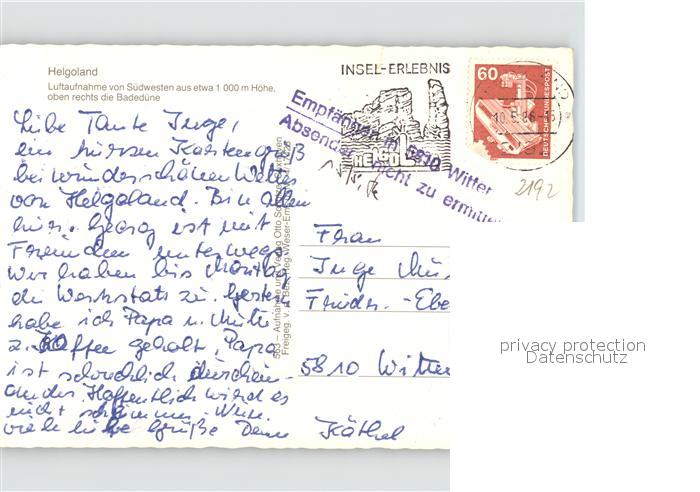 Helgoland
Luftaufnahme von Südwesten aus etwa 1 000 m Höhe,
oben rechts die Badedüne
INSEL-ERLEBNIS
HELGOL
60
DEUTSCHE BUNDESPOST
10.5.86
Empfänger in 5810 Witten
Absender nicht zu ermitt
2192
Liebe Tante Inge,
ein kurzen Kartengruß
bei wunderschönen Wetter
von Helgoland. Bin allein
hier. Georg ist mit
Freunden unterwegs
Wir haben bis Montag
die Werkstatt zu. Gestern
habe ich Papa u. Mutti
z. Kaffee geholt, Papa
ist schrecklich durchein-
ander. Hoffentlich wird es
nicht schlimmer.
viele liebe Grüße Deine Käthel
563 – Aufnahme und Verlag Otto
Freigeg. v. d.
Frau
Inge
Frieder.-Ebe
5810 Witten
privacy protection
Datenschutz